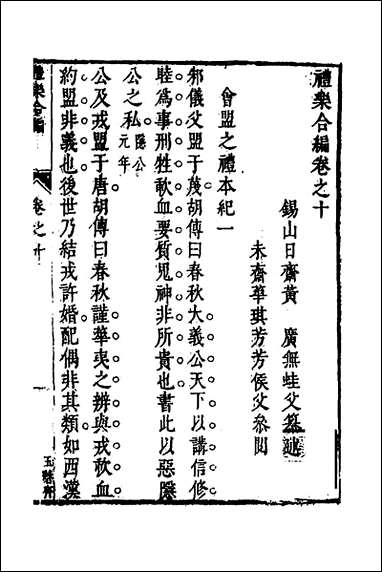 禮樂合編卷之十
錫山日齋黃 廣無蛙父纂述
未齋華琪芳芳侯父叅閱
會盟之禮本紀一
邾儀父盟于蔑胡傳曰春秋大義公天下以講信修
睦爲事刑牲歃血要質鬼神非所貴也書此以惡隱
公之私隱公元年
公及戎盟于唐胡傳曰春秋謹華夷之辨與戎歃血
約盟非義也後世乃結戎許婚配偶非其類如西漢
禮樂合編
卷之十
玉磬齋